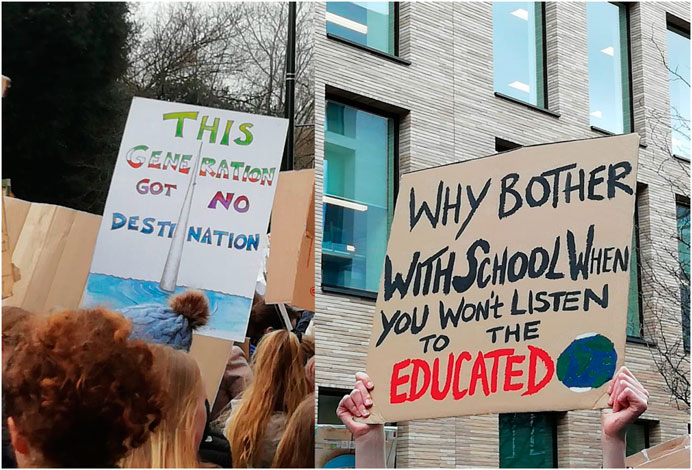 THIS
GENERATION
GOT NO
DESTINATION
WHY BOTHER
WITH SCHOOL WHEN
YOU WON'T LISTEN
TO THE
EDUCATED